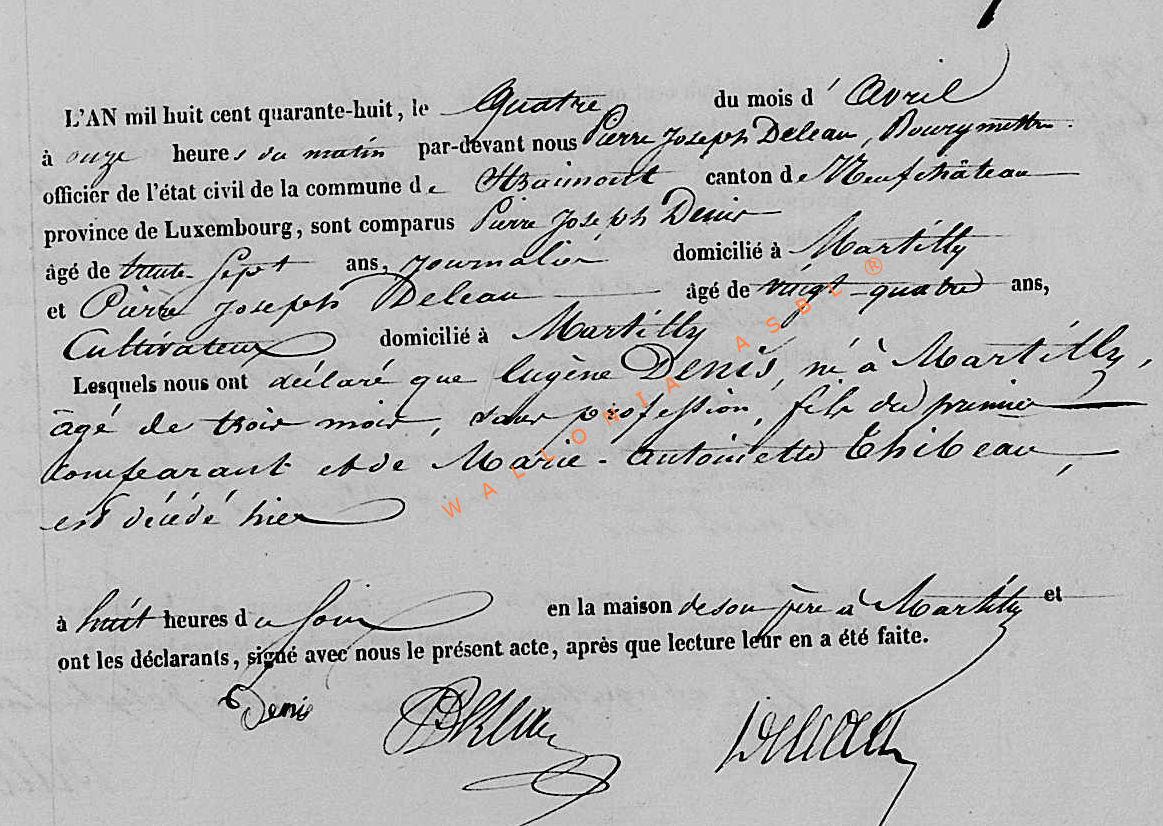 L'AN mil huit cent quarante-huit, le Quatre du mois d' Avril
à onze heures du matin par-devant nous Pierre Joseph Deleau, Bourgmettre
officier de l'état civil de la commune de Straimont canton de Neufchâteau
province de Luxembourg, sont comparus Pierre Joseph Denis
âgé de trente-sept ans, journalier domicilié à Martilly
et Pierre Joseph Deleau âgé de vingt-quatre ans,
Cultivateur domicilié à Martilly
Lesquels nous ont déclaré que Eugène Denis, né à Martilly,
âgé de trois mois, sans profession, fils du premier
comparant et de Marie-Antoinette Thibeau,
est décédé hier
à huit heures du soir en la maison de son père à Martilly et
ont les déclarants, signé avec nous le présent acte, après que lecture leur en a été faite.
Denis Deleau
WALLONIA ASBL ®